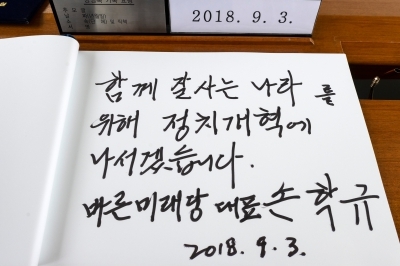 2018. 9. 3.
함께 잘사는 나라를
위해 정치개혁에
나서겠습니다.
바른미래당 대표 손학규
2018. 9. 3.